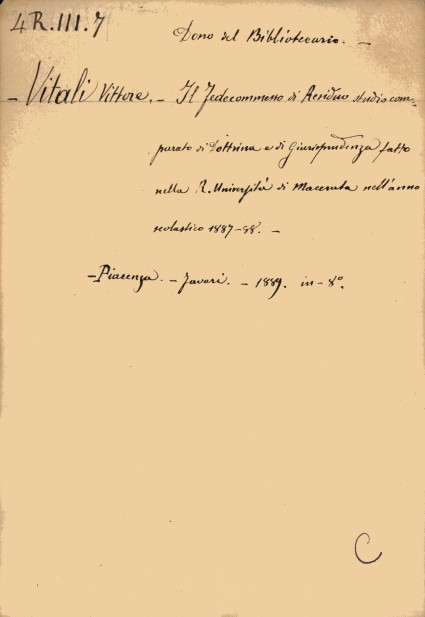 4 R.III.7
Dono del Bibliotecario. —
— Vitali Vittore. — Il Fedecommesso di Residuo studio com-
parato di Dottrina e di Giurisprudenza fatto
nella R. Università di Macerata nell'anno
scolastico 1887-88. —
— Piacenza. — Favari. — 1889. in-8°.
C